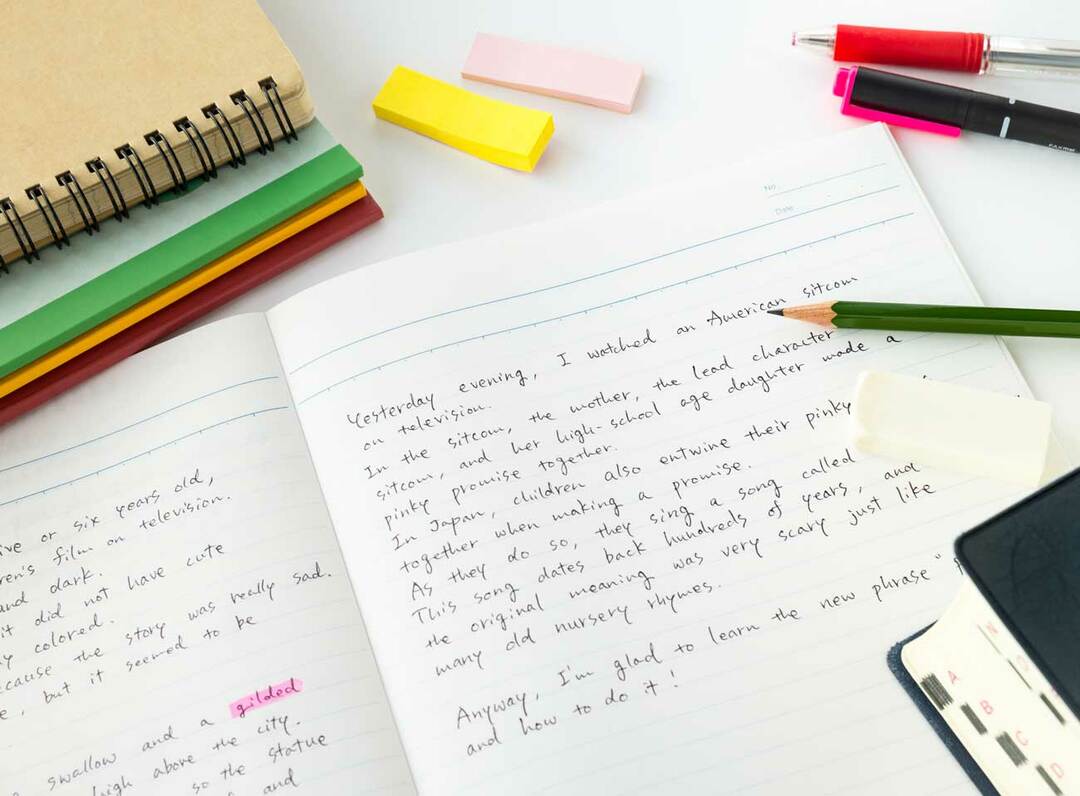 No.
Date
Yesterday evening, I watched an American sitcom
on television.
In the sitcom, the mother, the lead character
sitcom, and her high-school age daughter made a
pinky promise together.
In Japan, children also entwine their pinky
together when making a promise.
As they do so, they sing a song called
This song dates back hundreds of years, and
the original meaning was very scary just like
many old nursery rhymes.
Anyway, I'm glad to learn the new phrase "
and how to do it!
or six years old,
film on television.
and dark.
it did not have cute
colored.
the story was really sad.
, but it seemed to be
swallow and a gilded
high above the city.
so the statue
and
A
B
C
D